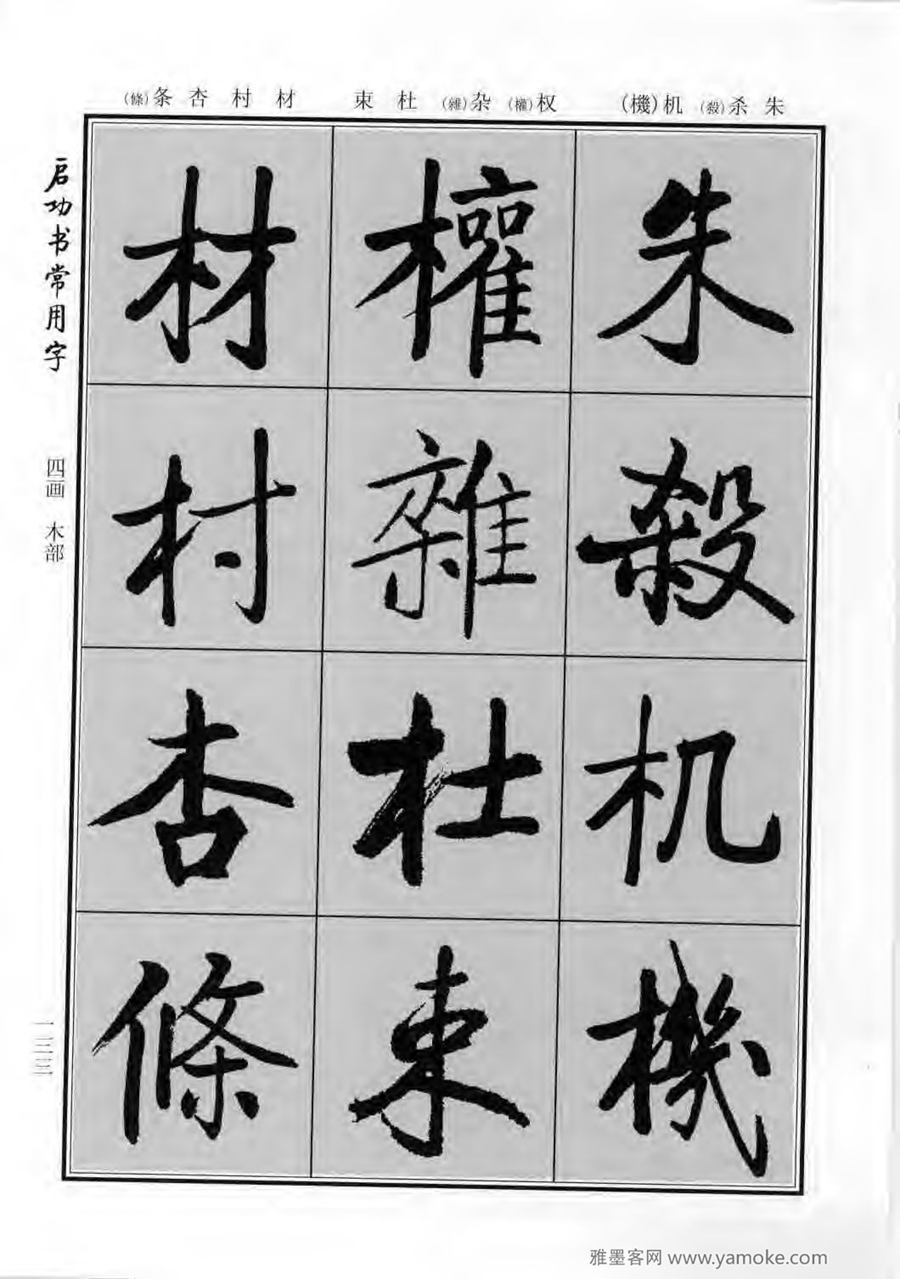 朱 杀(殺) 机(機) 权(權) 杂(雜) 杜 束 材 村 杏 条(條)
朱
殺
机
機
權
雜
杜
束
材
村
杏
條
启功书常用字
四画 木部
一三三
雅墨客网 www.yamoke.com